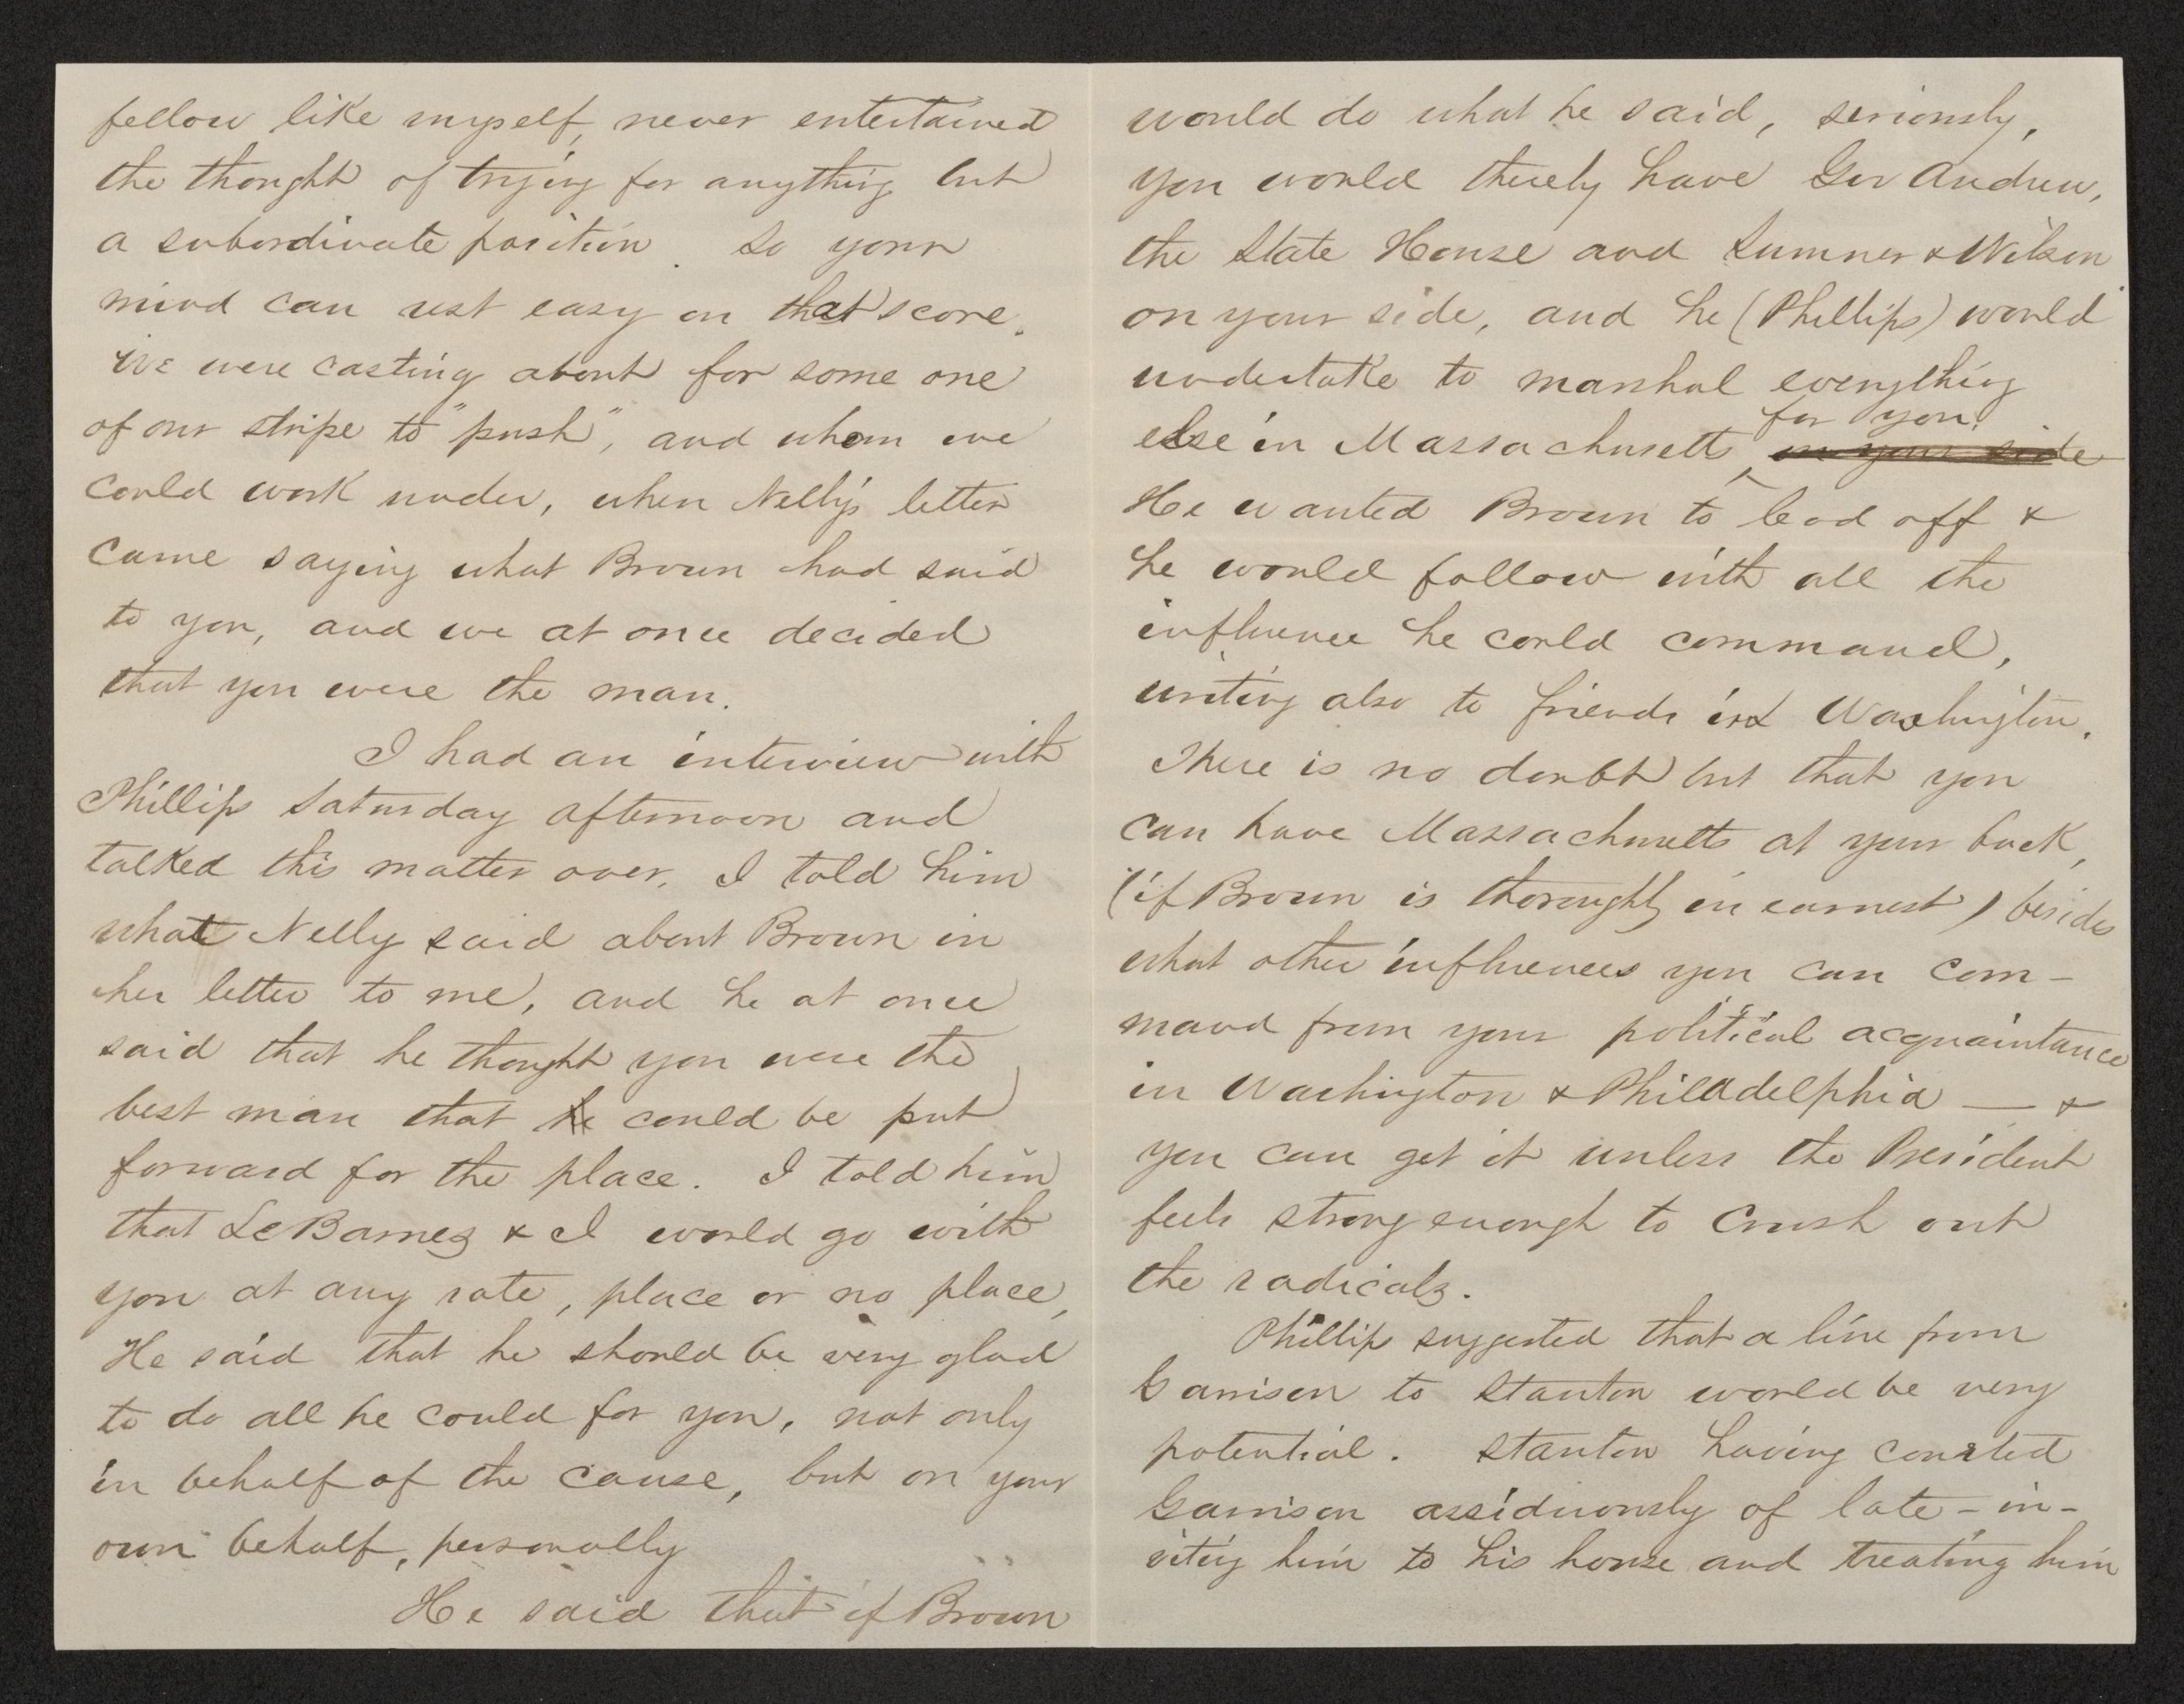 fellow like myself, never entertained
the thought of trying for anything but
a subordinate position. So your
mind can rest easy on that score.
We were casting about for some one
of our stripe to "push", and whom we
could work under, when Nelly's letter
came saying what Brown had said
to you, and we at once decided
that you were the man.
I had an interview with
Phillips Saturday afternoon and
talked this matter over. I told him
what Nelly said about Brown in
her letter to me, and he at once
said that he thought you were the
best man that he could be put
forward for the place. I told him
that LeBarnes & I would go with
you at any rate, place or no place,
He said that he should be very glad
to do all he could for you, not only
in behalf of the cause, but on your
own behalf, personally
He said that if Brown
would do what he said, seriously,
you would thereby have Gov Andrew,
the State House and Sumner & Wilson
on your side, and he (Phillips) would
undertake to marshal everything
for you.
else in Massachusetts, on your side
He wanted Brown to lead off &
he would follow with all the
influence he could command,
writing also to friends in Washington.
There is no doubt but that you
can have Massachusetts at your back,
(if Brown is thoroughly in earnest) besides
what other influences you can com-
mand from your political acquaintance
in Washington & Philadelphia — &
you can get it unless the President
feels strong enough to crush out
the radicals.
Phillips suggested that a line from
Garrison to Stanton would be very
potential. Stanton having courted
Garrison assiduously of late - in-
viting him to his house and treating him